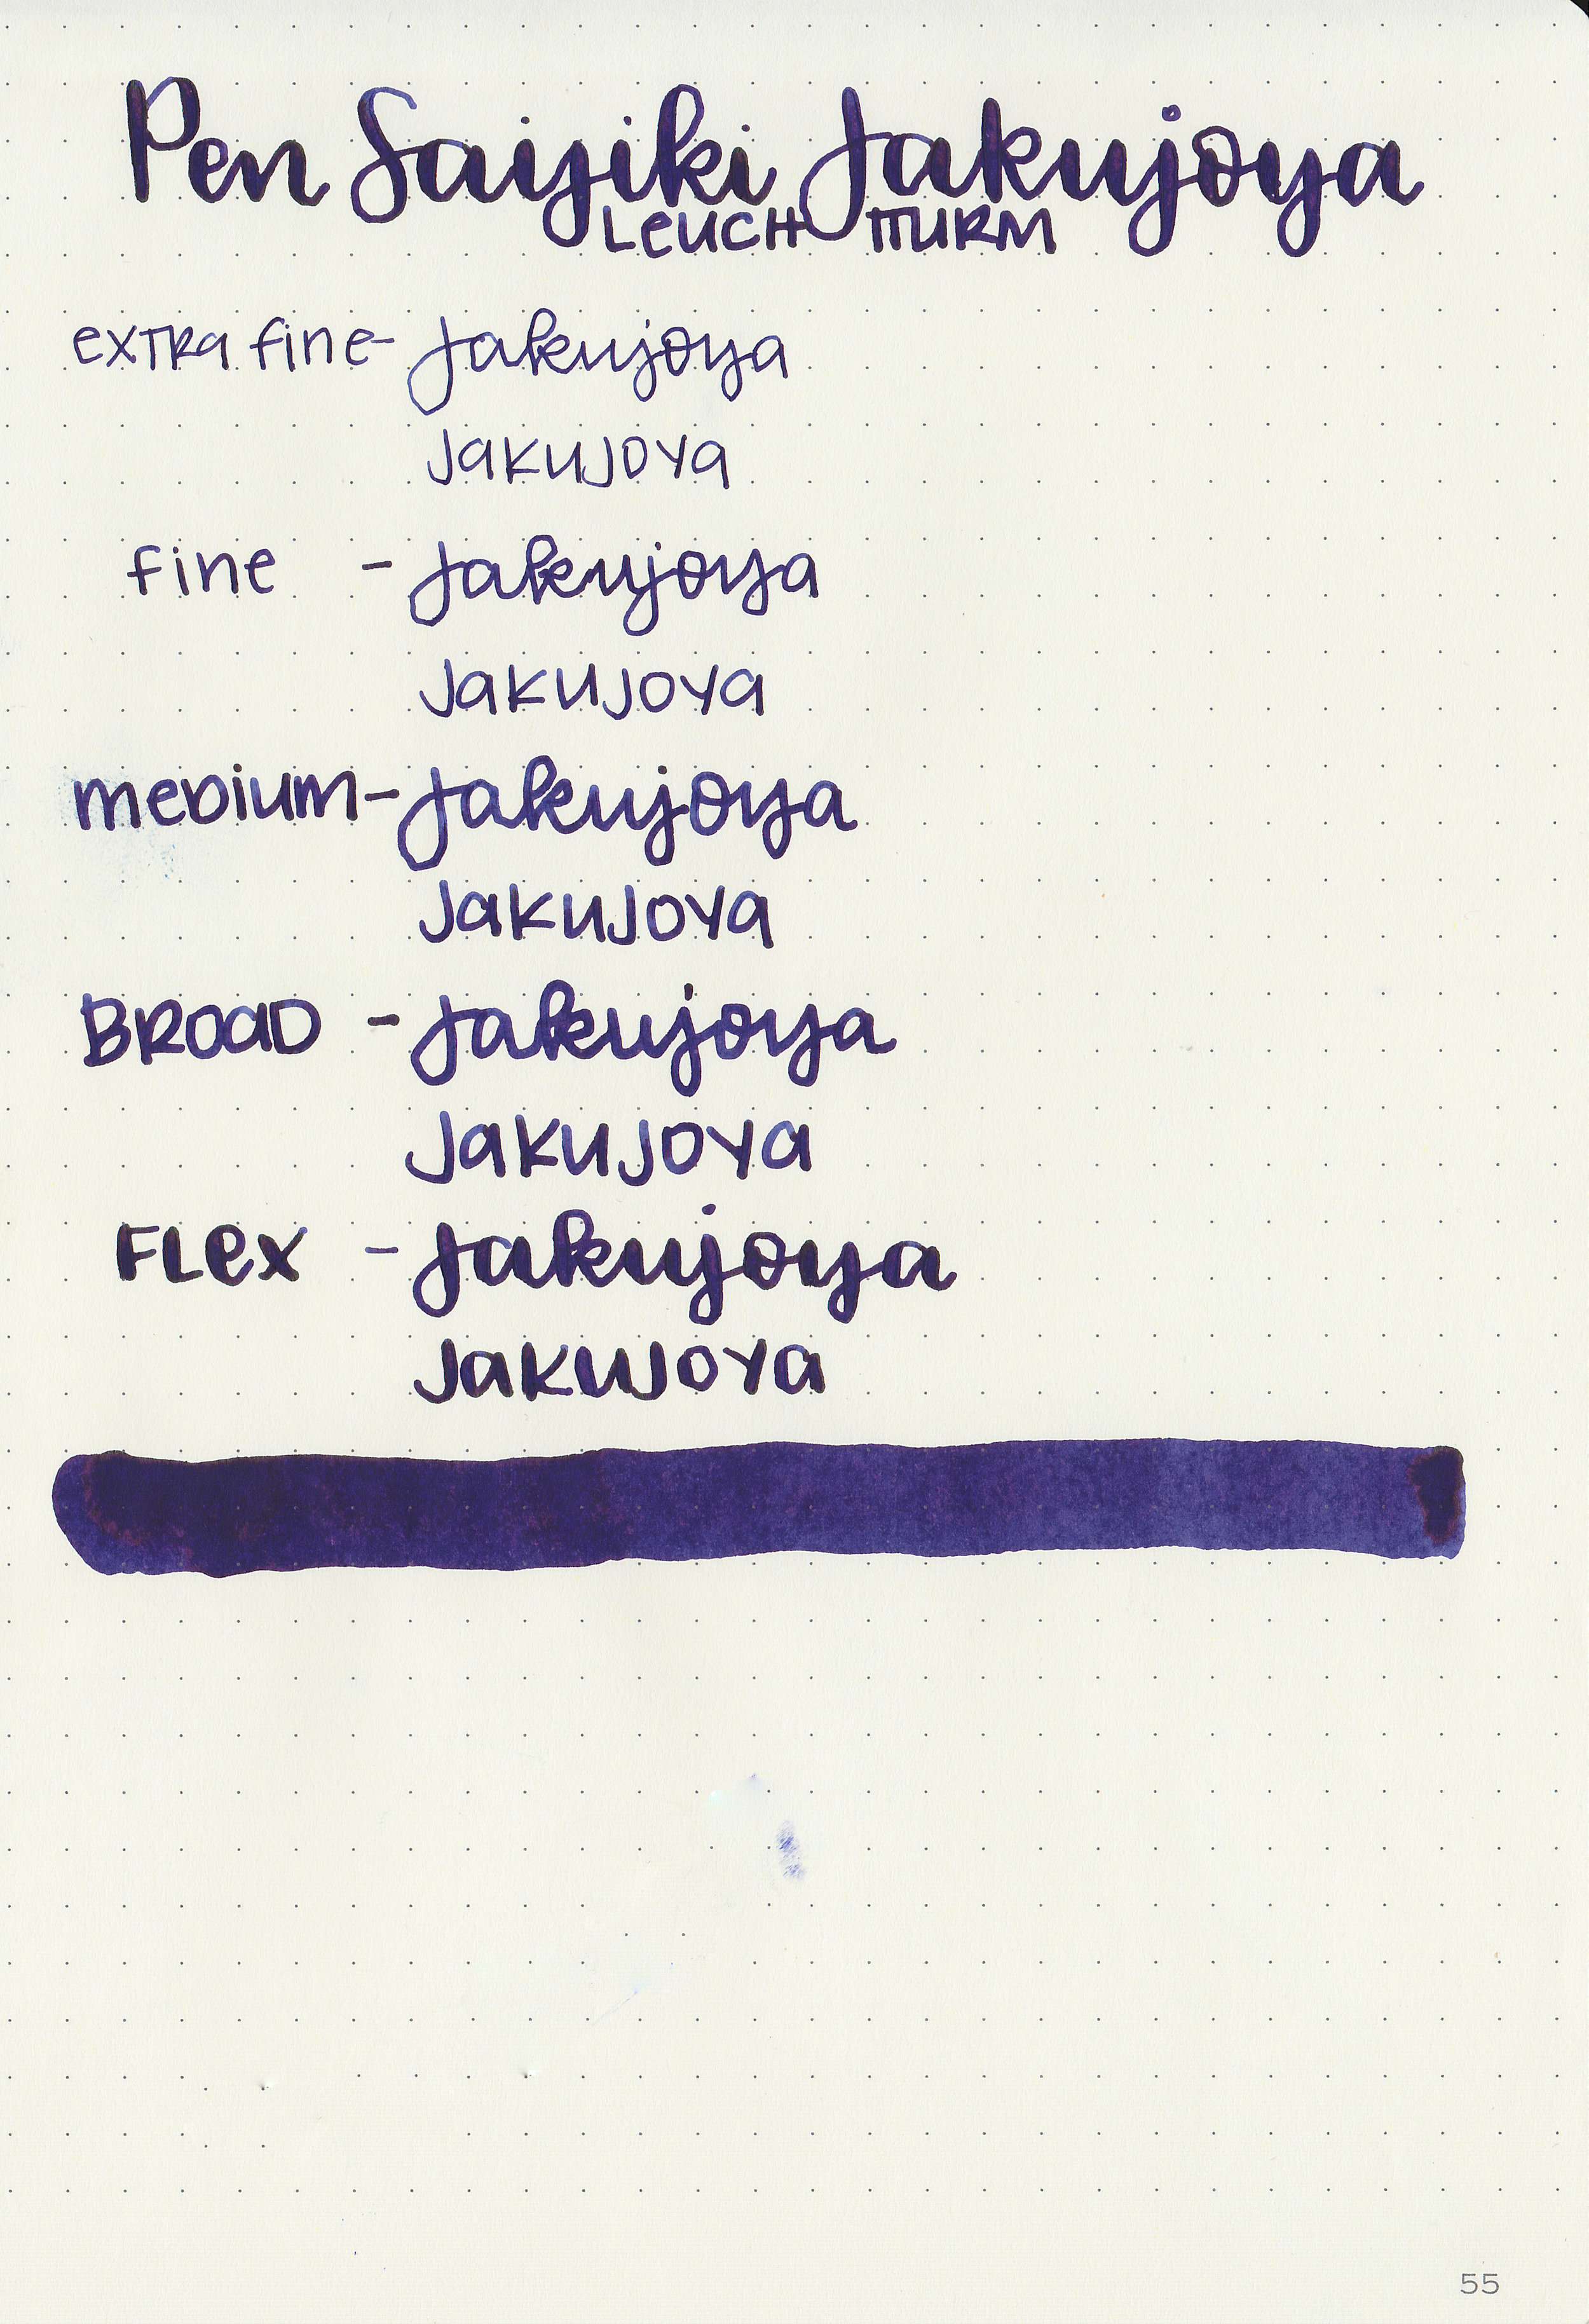 Pen Saiyiki Jakujoya
LEUCHTTURM
extra fine - Jakujoya
Jakujoya
fine - Jakujoya
Jakujoya
medium - Jakujoya
Jakujoya
BROAD - Jakujoya
Jakujoya
FLex - Jakujoya
Jakujoya
55